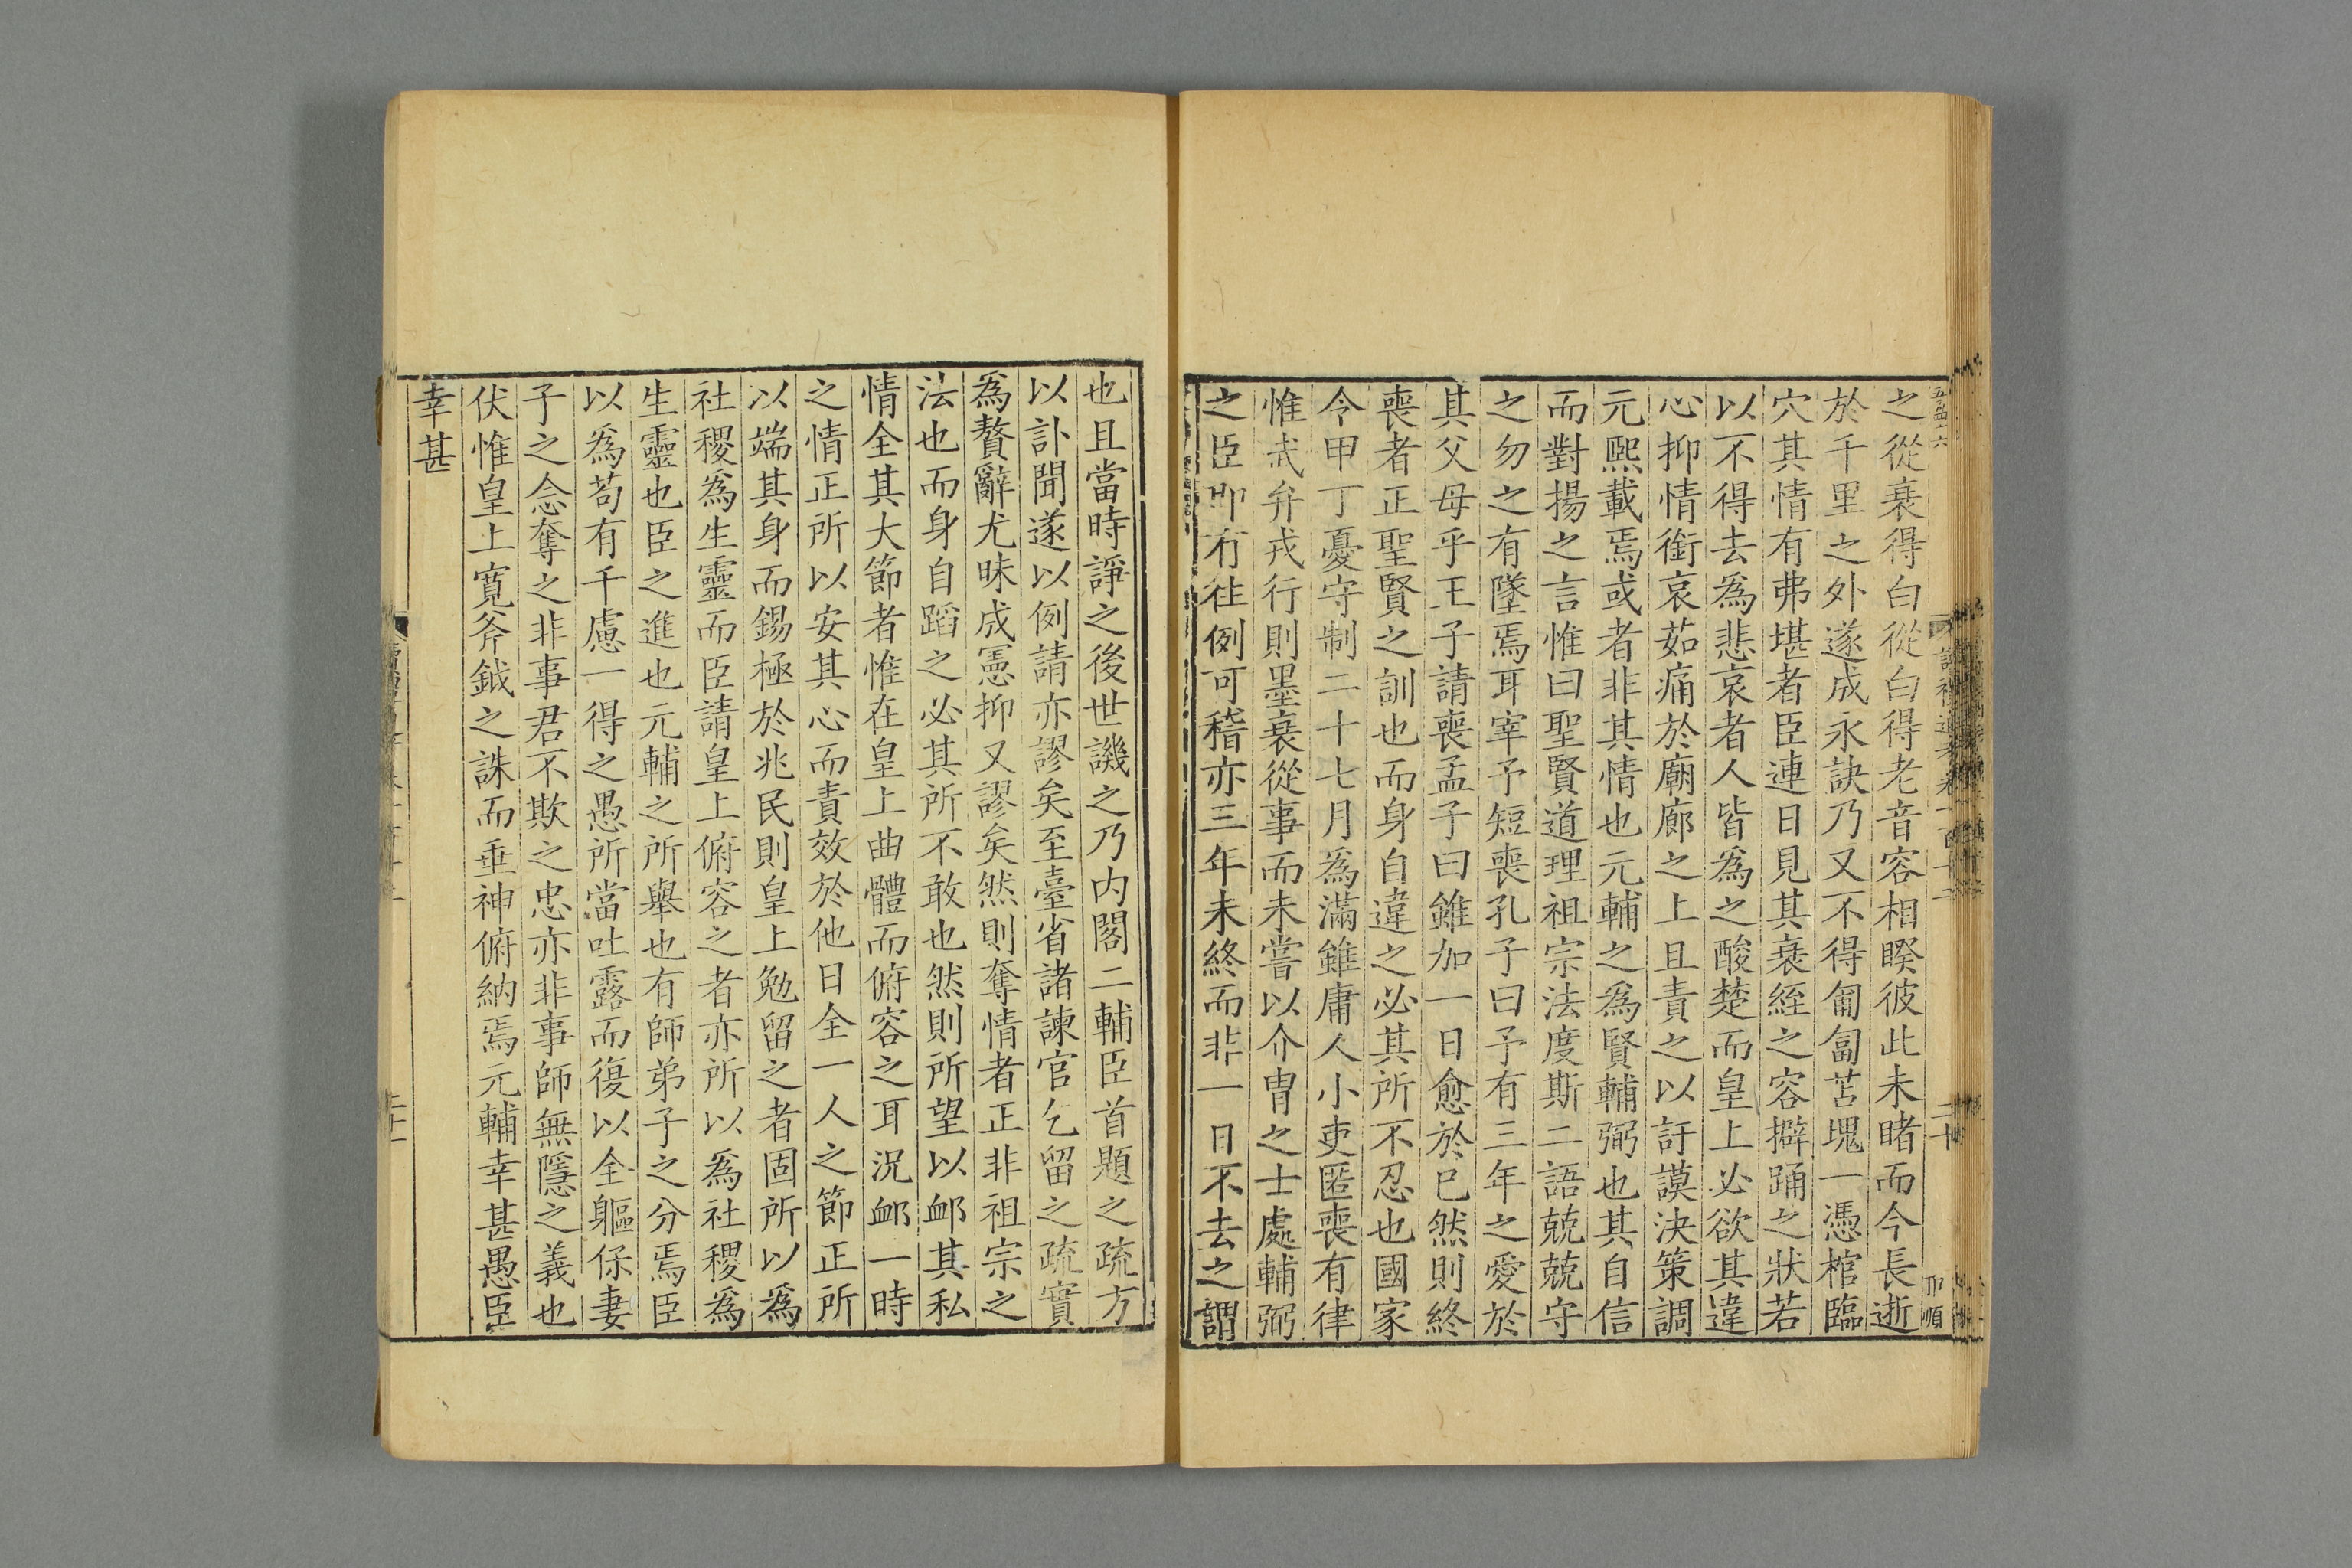 之從衰得白從白得老音容相睽彼此未睹而今長逝
於千里之外遂成永訣乃又不得匍匐苫塊一憑棺臨
穴其情有弗堪者臣連日見其衰絰之容擗踊之狀若
以不得去爲悲哀者人皆爲之酸楚而皇上必欲其違
心抑情銜哀茹痛於廟廊之上且責之以訏謨決策調
元熙載焉或者非其情也元輔之爲賢輔弼也其自信
而對揚之言惟曰聖賢道理祖宗法度斯二語兢兢守
之勿之有墜焉耳宰予短喪孔子曰予有三年之愛於
其父母乎王子請喪孟子曰雖加一日愈於已然則終
喪者正聖賢之訓也而身自違之必其所不忍也國家
令甲丁憂守制二十七月爲滿雖庸人小吏匿喪有律
惟武弁戎行則墨衰從事而未嘗以介冑之士處輔弼
之臣即有往例可稽亦三年未終而非一日不去之謂
也且當時諍之後世譏之乃内閣二輔臣首題之疏方
以訃聞遂以例請亦謬矣至臺省諸諫官乞留之疏實
爲贅辭尤昧成憲抑又謬矣然則奪情者正非祖宗之
法也而身自蹈之必其所不敢也然則所望以卹其私
情全其大節者惟在皇上曲體而俯容之耳況卹一時
之情正所以安其心而責效於他日全一人之節正所
以端其身而錫極於兆民則皇上勉留之者固所以爲
社稷爲生靈而臣請皇上俯容之者亦所以爲社稷爲
生靈也臣之進也元輔之所舉也有師弟子之分焉臣
以爲苟有千慮一得之愚所當吐露而復以全軀保妻
子之念奪之非事君不欺之忠亦非事師無隱之義也
伏惟皇上寬斧鉞之誅而垂神俯納焉元輔幸甚愚臣
幸甚